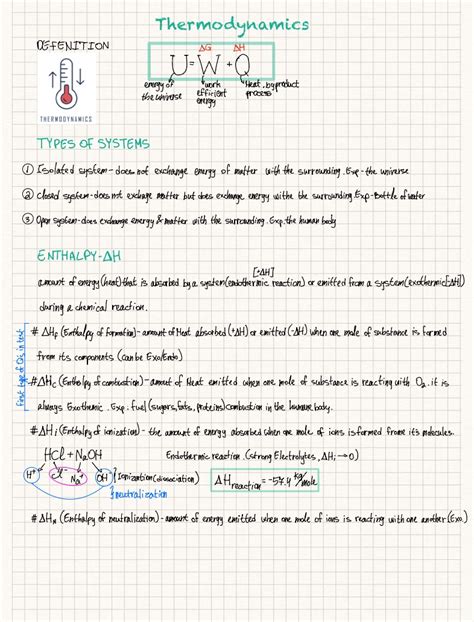 Thermodynamics
DEFENITION
ΔG ΔH
U=W+Q
energy of the universe
work efficient energy
Heat, byproduct process
THERMODYNAMICS
TYPES OF SYSTEMS
① Isolated system - does not exchange energy of matter with the surrounding. Exp - the universe
② Closed system - does not exchange matter but does exchange energy withe the surrounding. Exp - Bottle of water
③ Open system - does exchange energy & matter with the surrounding. Exp. the human body
ENTHALPY - ΔH
[+ΔH]
amount of energy (heat) that is absorbed by a system (endothermic reaction) or emitted from a system (exothermic [-ΔH])
during a chemical reaction.
first type of Qs in test
# ΔHf (Enthalpy of formation) - amount of Heat absorbed (+ΔH) or emitted (-ΔH) when one mole of substance is formed
from its components (can be Exo/Endo)
# ΔHc (Enthalpy of combustion) - amount of Heat emitted when one mole of substance is reacting with O₂. it is
always Exothermic. Exp. fuel (sugars, fats, proteins) combustion in the human body.
# ΔHi (Enthalpy of ionization) - the amount of energy absorbed when one mole of ions is formed from it's molecules.
HCl + NaOH
Endothermic reaction. (strong Electrolytes, ΔHi → 0)
H⁺ Cl⁻ Na⁺ OH⁻ } Ionization (dissociation)
ΔH reaction = -57.4 /mole
} neutralization
# ΔHn (Enthalpy of neutralization) - amount of energy emitted when one mole of ions is reacting with one another (Exo.)